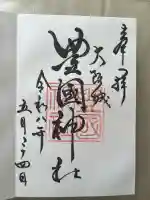 奉拝
大阪城
豊國神社
令和八年
五月二十四日